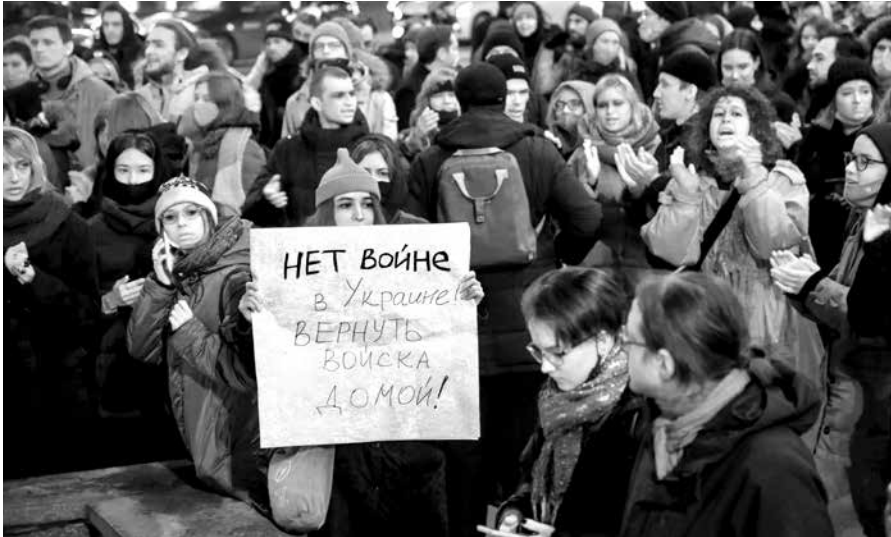 НЕТ ВОЙНЕ
в Украине!
ВЕРНУТЬ
ВОЙСКА
ДОМОЙ!